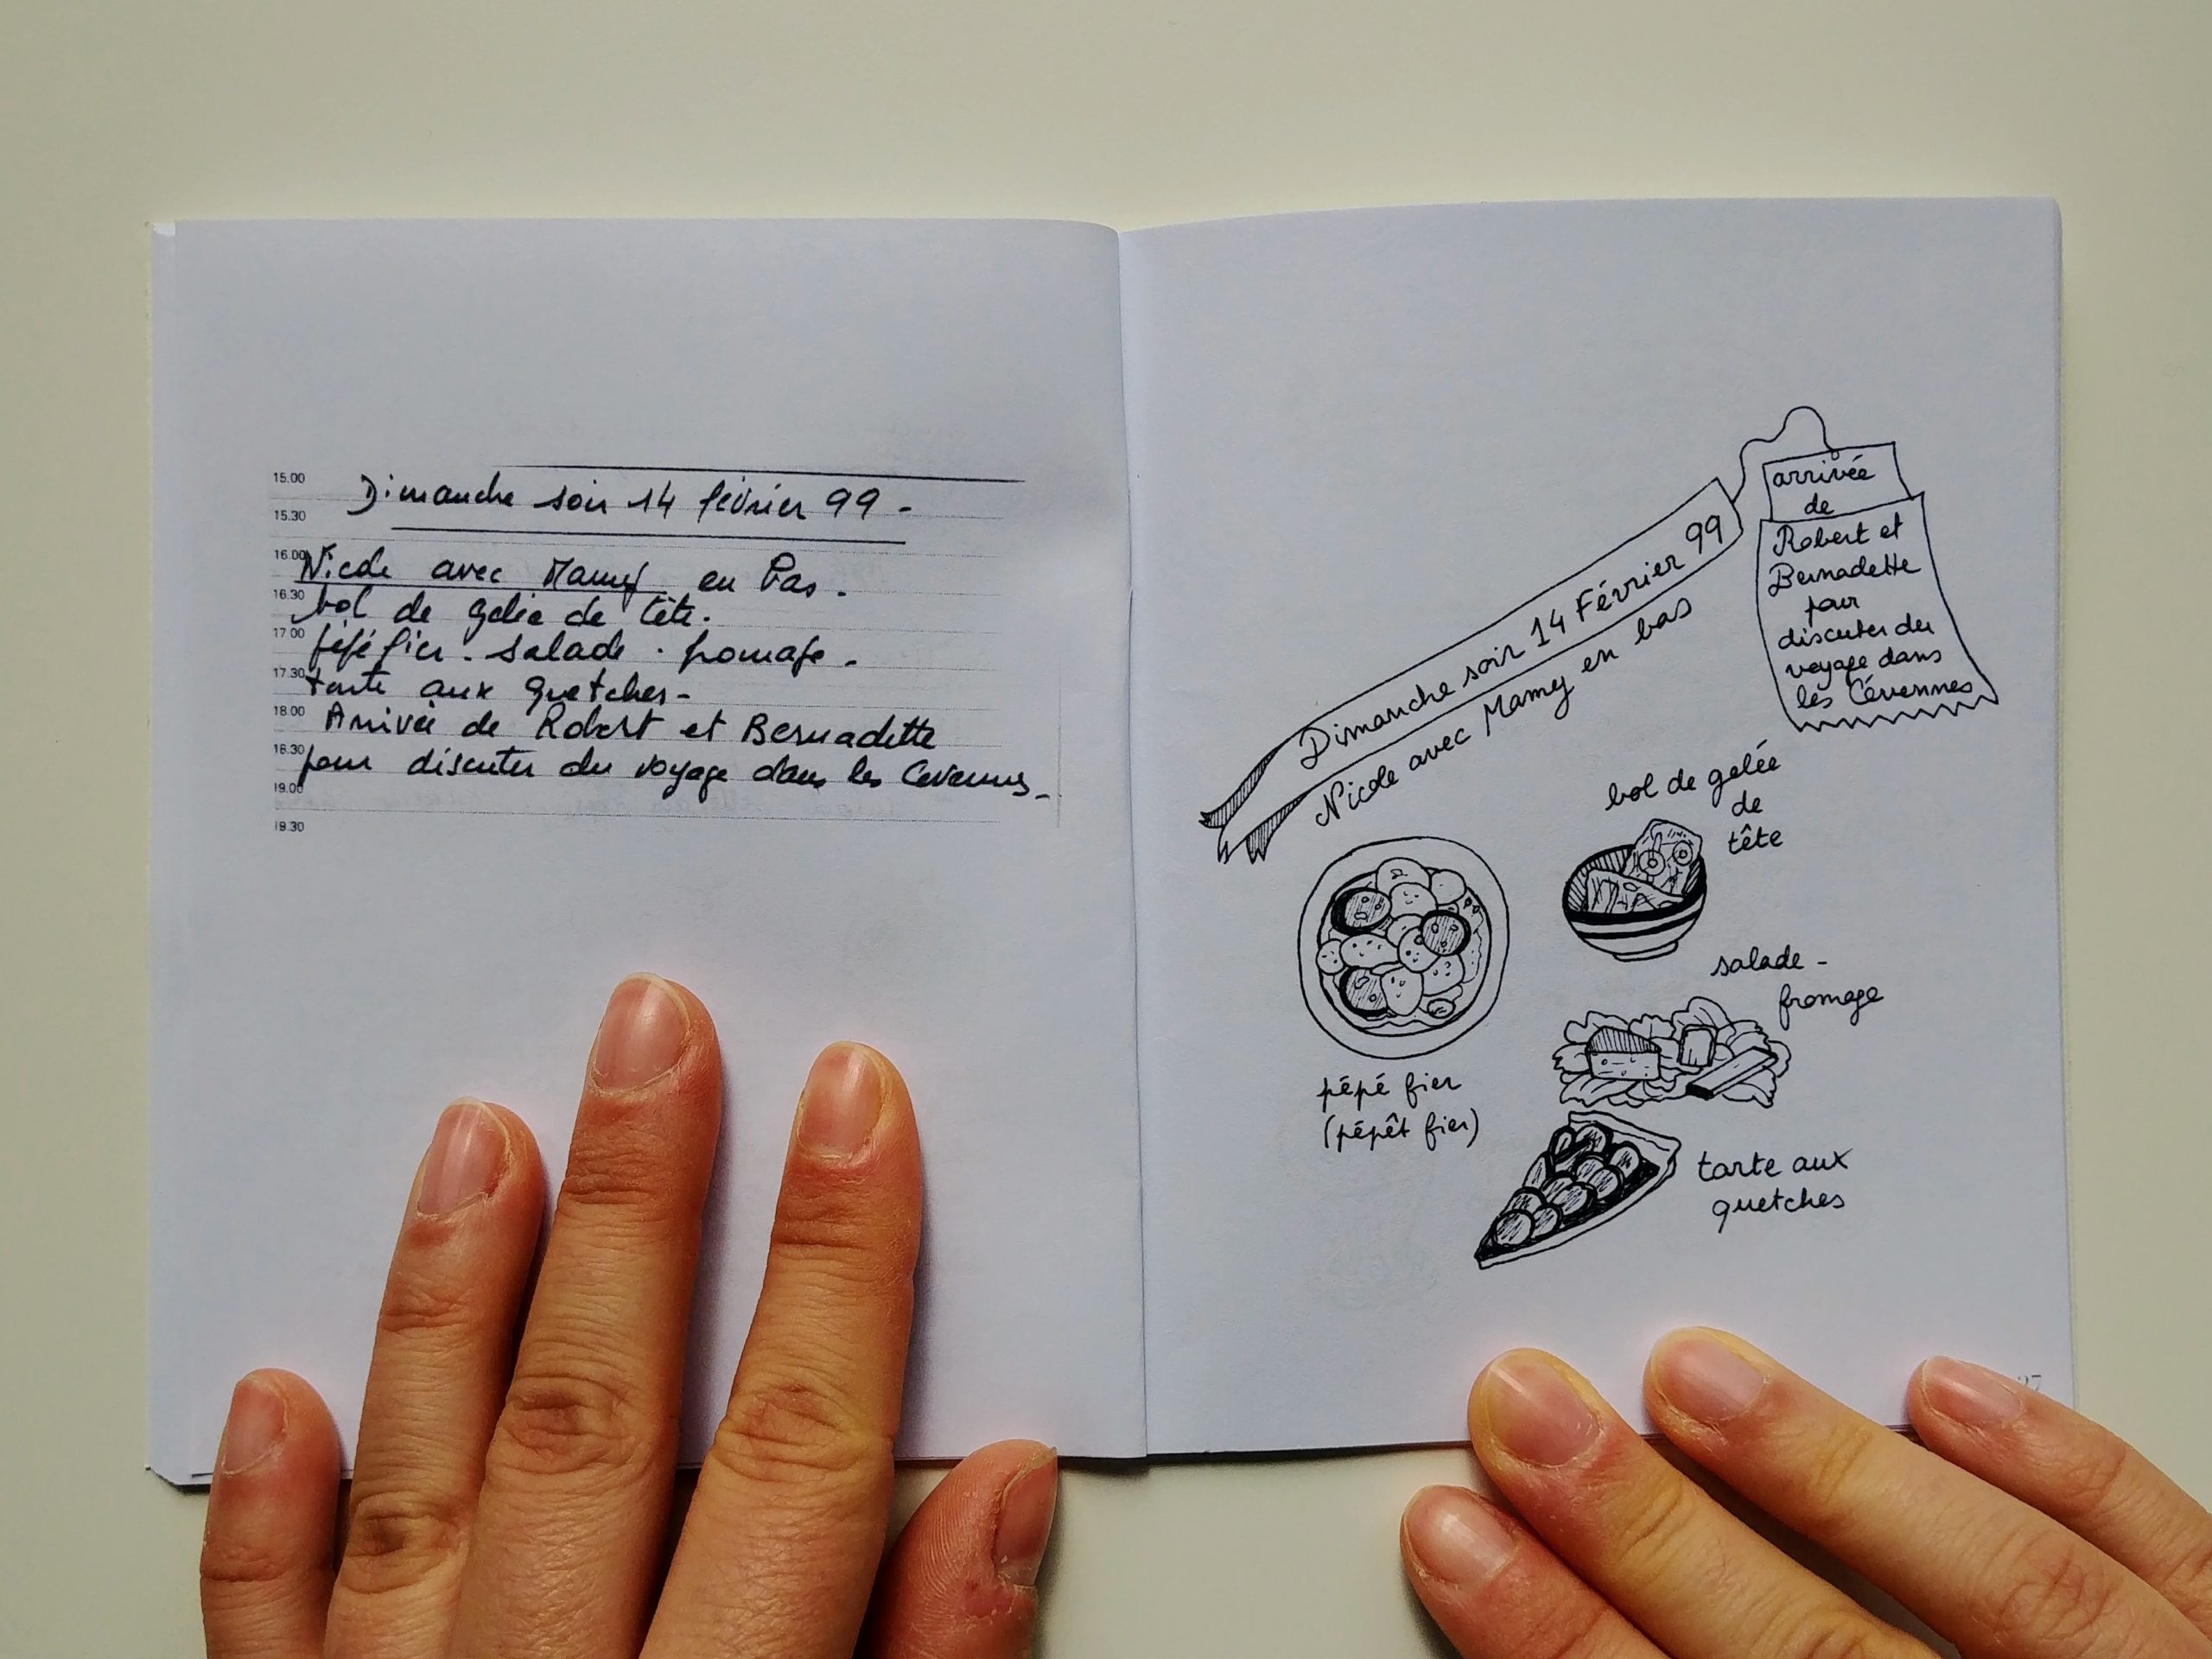 15.00
Dimanche soir 14 février 99 -
15.30
16.00
Nicole avec Mamy en bas.
16.30
bol de gelée de tête.
17.00
pépé fier. salade. fromage.
17.30
tarte aux quetches-
18.00
Arrivée de Robert et Bernadette
18.30
pour discuter du voyage dans les Cevennes-
19.00
19.30
Dimanche soir 14 Février 99
Nicole avec Mamy en bas
arrivée
de
Robert et
Bernadette
pour
discuter du
voyage dans
les Cévennes
bol de gelée
de
tête
salade -
fromage
pépé fier
(pépêt fier)
tarte aux
quetches
27